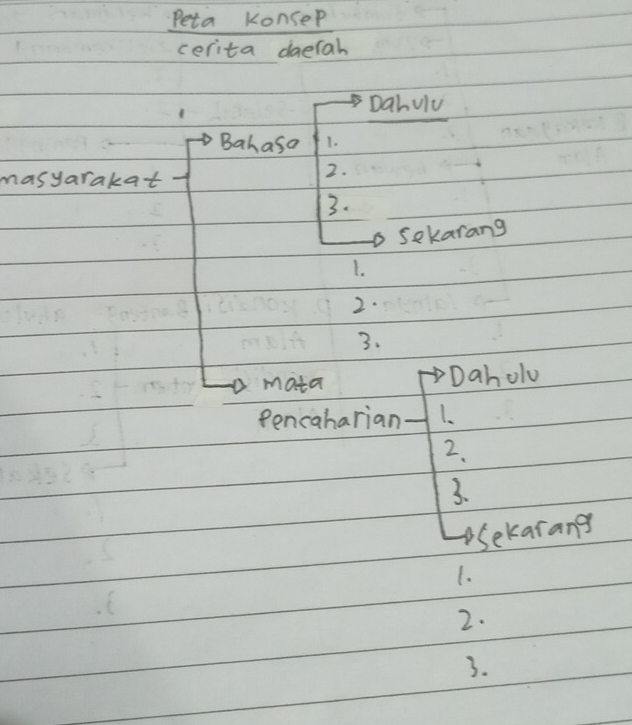 Peta Konsep
cerita daerah
Dahulu
Bahasa
1.
masyarakat
2.
3.
Sekarang
1.
2.
3.
mata
Pencaharian
Dahulu
1.
2.
3.
Sekarang
1.
2.
3.